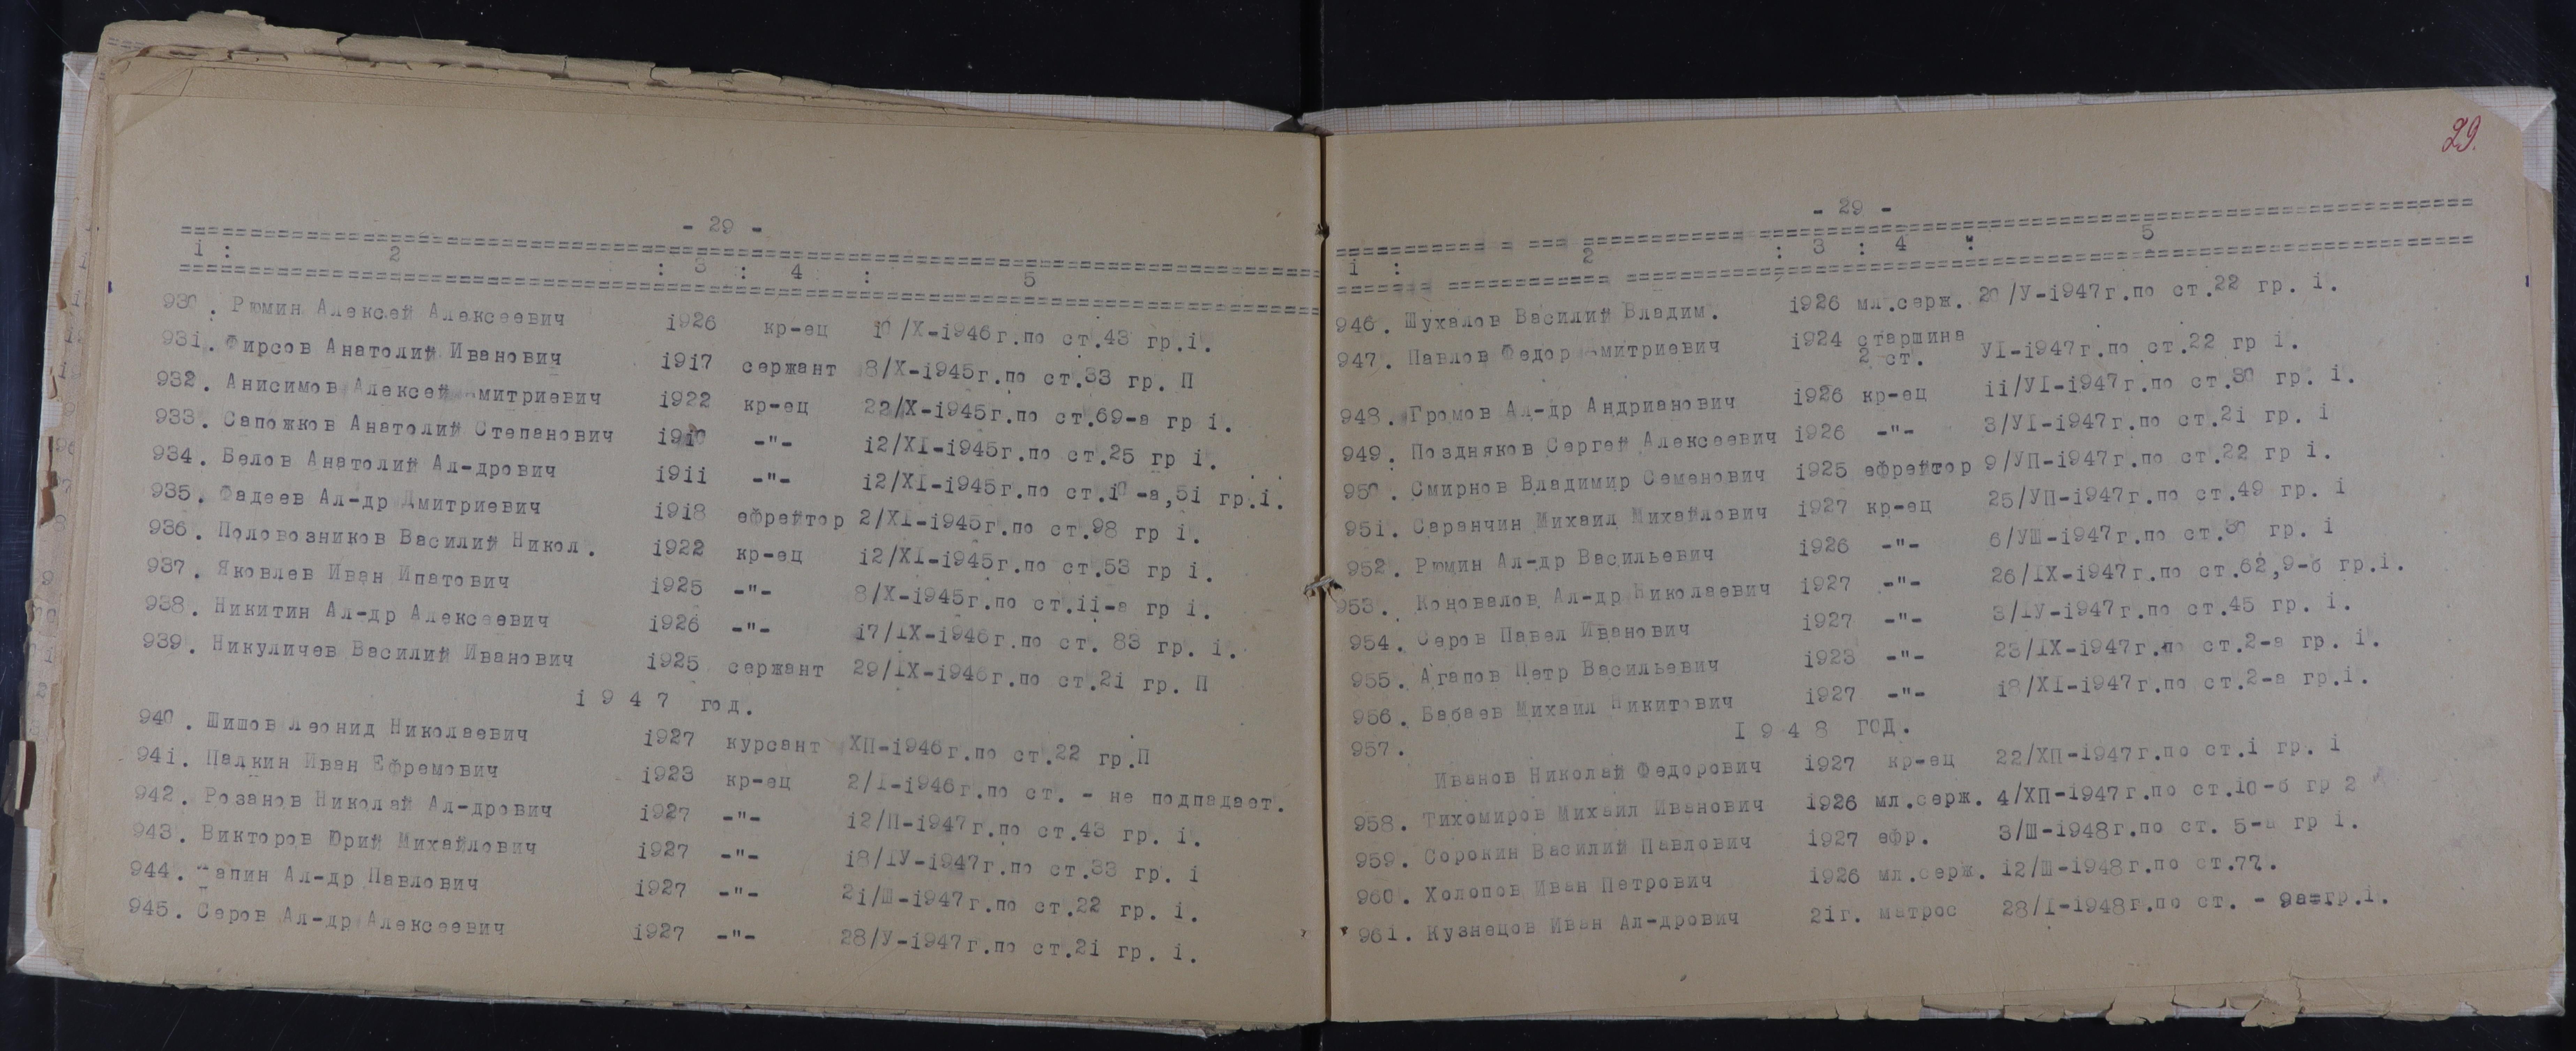 - 29 -
1 : 2 : 3 : 4 : 5
930. Рюмин Алексей Алексеевич 1926 кр-ец 10/X-1946г.по ст.43 гр.1.
931. Фирсов Анатолий Иванович 1917 сержант 8/X-1945г.по ст.33 гр. П
932. Анисимов Алексей митриевич 1922 кр-ец 22/X-1945г.по ст.69-а гр 1.
933. Сапожков Анатолий Степанович 1910 -"- 12/XI-1945г.по ст.25 гр 1.
934. Белов Анатолий Ал-дрович 1911 -"- 12/XI-1945г.по ст.10-а,51 гр.1.
935. Фадеев Ал-др Дмитриевич 1918 ефрейтор 2/XI-1945г.по ст.98 гр 1.
936. Половозников Василий Никол. 1922 кр-ец 12/XI-1945г.по ст.53 гр 1.
937. Яковлев Иван Ипатович 1925 -"- 8/X-1945г.по ст.11-а гр 1.
938. Никитин Ал-др Алексеевич 1926 -"- 17/IX-1946г.по ст. 83 гр. 1.
939. Никуличев Василий Иванович 1925 сержант 29/IX-1946г.по ст.21 гр. П
1 9 4 7 год.
940. Шишов Леонид Николаевич 1927 курсант ХП-1946г.по ст.22 гр.П
941. Палкин Иван Ефремович 1923 кр-ец 2/I-1946г.по ст. - не подпадает.
942. Розанов Николай Ал-дрович 1927 -"- 12/П-1947г.по ст.43 гр. 1.
943. Викторов Юрий Михайлович 1927 -"- 18/IУ-1947г.по ст.33 гр. 1
944. апин Ал-др Павлович 1927 -"- 21/Ш-1947г.по ст.22 гр. 1.
945. Серов Ал-др Алексеевич 1927 -"- 28/У-1947г.по ст.21 гр. 1.
29.
- 29 -
1 : 2 : 3 : 4 : 5
946. Шухалов Василий Владим. 1926 мл.серж. 20/У-1947г.по ст.22 гр. 1.
947. Павлов Федор митриевич 1924 старшина УI-1947г.по ст.22 гр 1.
2 ст.
948. Громов Ал-др Андрианович 1926 кр-ец 11/УI-1947г.по ст.30 гр. 1.
949. Поздняков Сергей Алексеевич 1926 -"- 3/УI-1947г.по ст.21 гр. 1
950. Смирнов Владимир Семенович 1925 ефрейтор 9/УП-1947г.по ст.22 гр 1.
951. Саранчин Михаил Михайлович 1927 кр-ец 25/УП-1947г.по ст.49 гр. 1
952. Рюмин Ал-др Васильевич 1926 -"- 6/УШ-1947г.по ст.30 гр. 1
953. Коновалов Ал-др Николаевич 1927 -"- 26/IX-1947г.по ст.62,9-б гр.1.
954. Серов Павел Иванович 1927 -"- 3/IУ-1947г.по ст.45 гр. 1.
955. Агапов Петр Васильевич 1923 -"- 23/IX-1947г.по ст.2-а гр. 1.
956. Бабаев Михаил Никитович 1927 -"- 18/XI-1947г.по ст.2-а гр.1.
1 9 4 8 ГОД.
957. Иванов Николай Федорович 1927 кр-ец 22/ХП-1947г.по ст.1 гр. 1
958. Тихомиров Михаил Иванович 1926 мл.серж. 4/ХП-1947г.по ст.10-б гр 2
959. Сорокин Василий Павлович 1927 ефр. 3/Ш-1948г.по ст. 5-а гр 1.
960. Холопов Иван Петрович 1926 мл.серж. 12/Ш-1948г.по ст.77.
961. Кузнецов Иван Ал-дрович 21г. матрос 28/I-1948г.по ст. - 9а=гр.1.